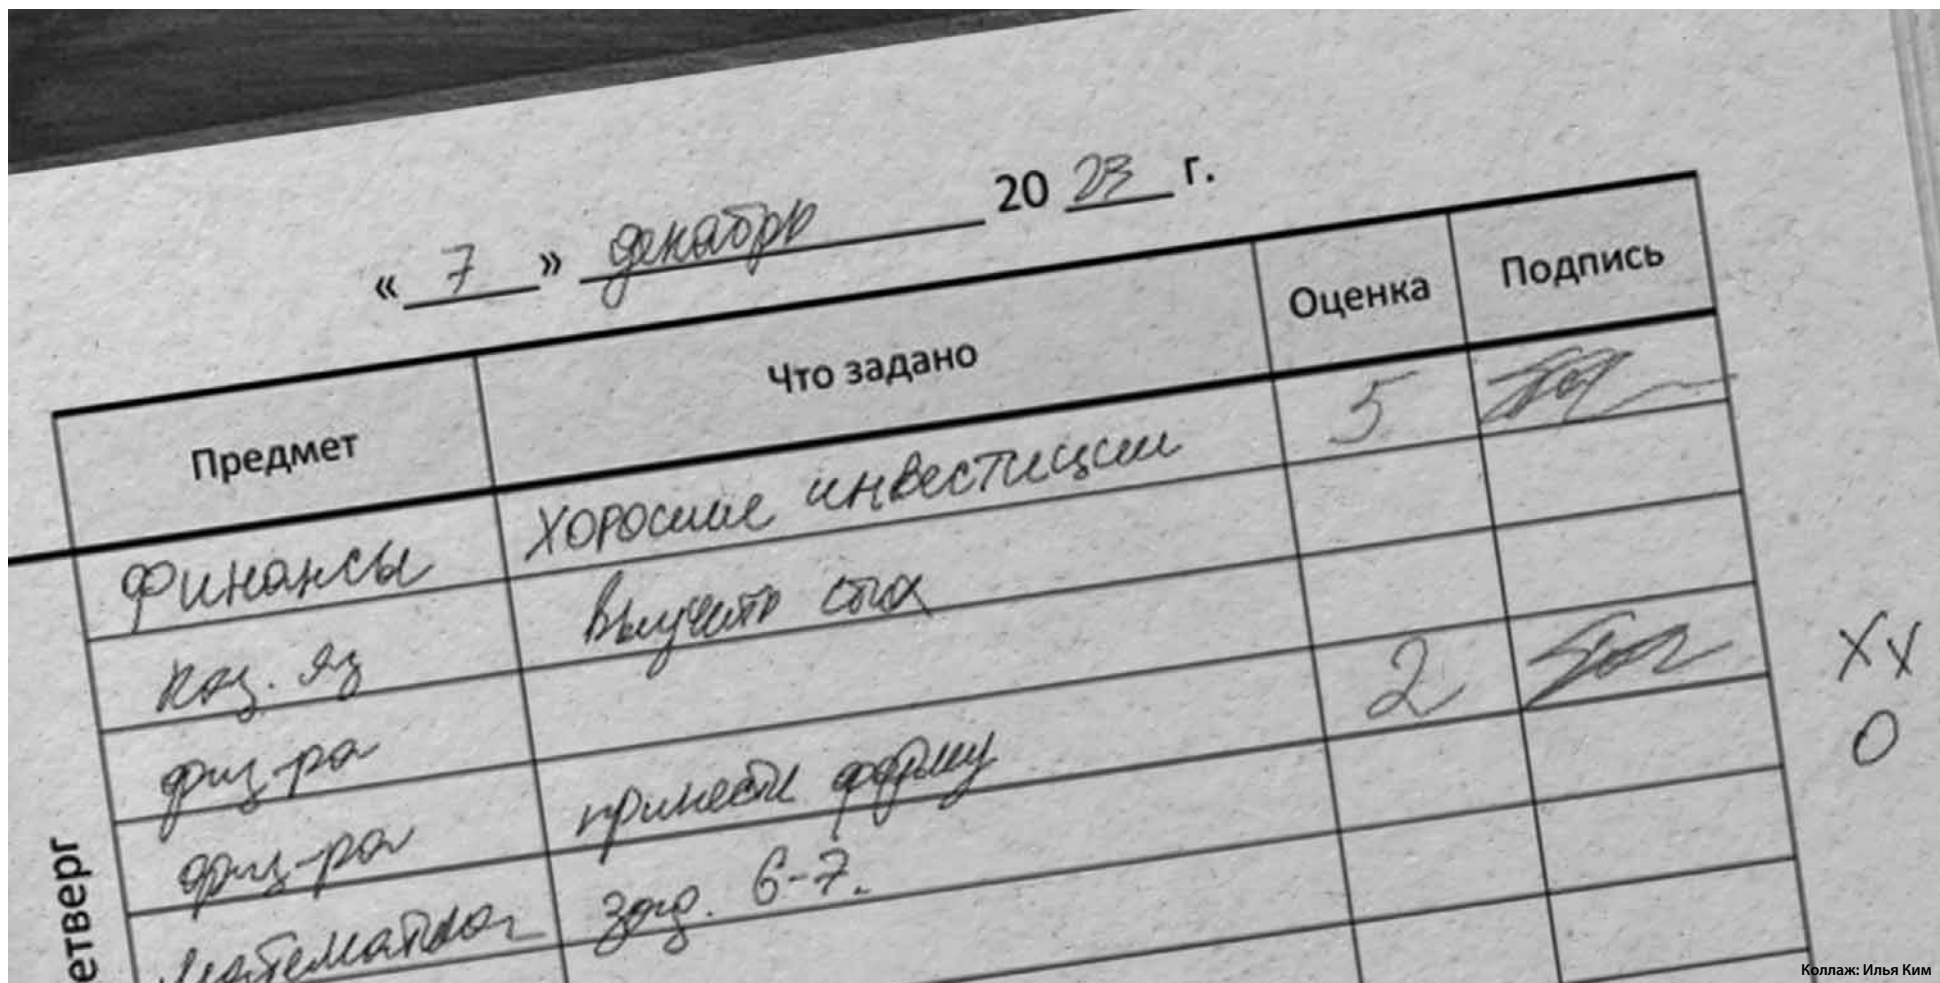 « 7 » декабрь 20 23 г.
Предмет Что задано Оценка Подпись
Финансы хорошие инвестиции 5
каз. яз выучить стих
физ-ра
физ-ра принести форму 2
математика зад. 6-7.
етверг
X X
O
Коллаж: Илья Ким